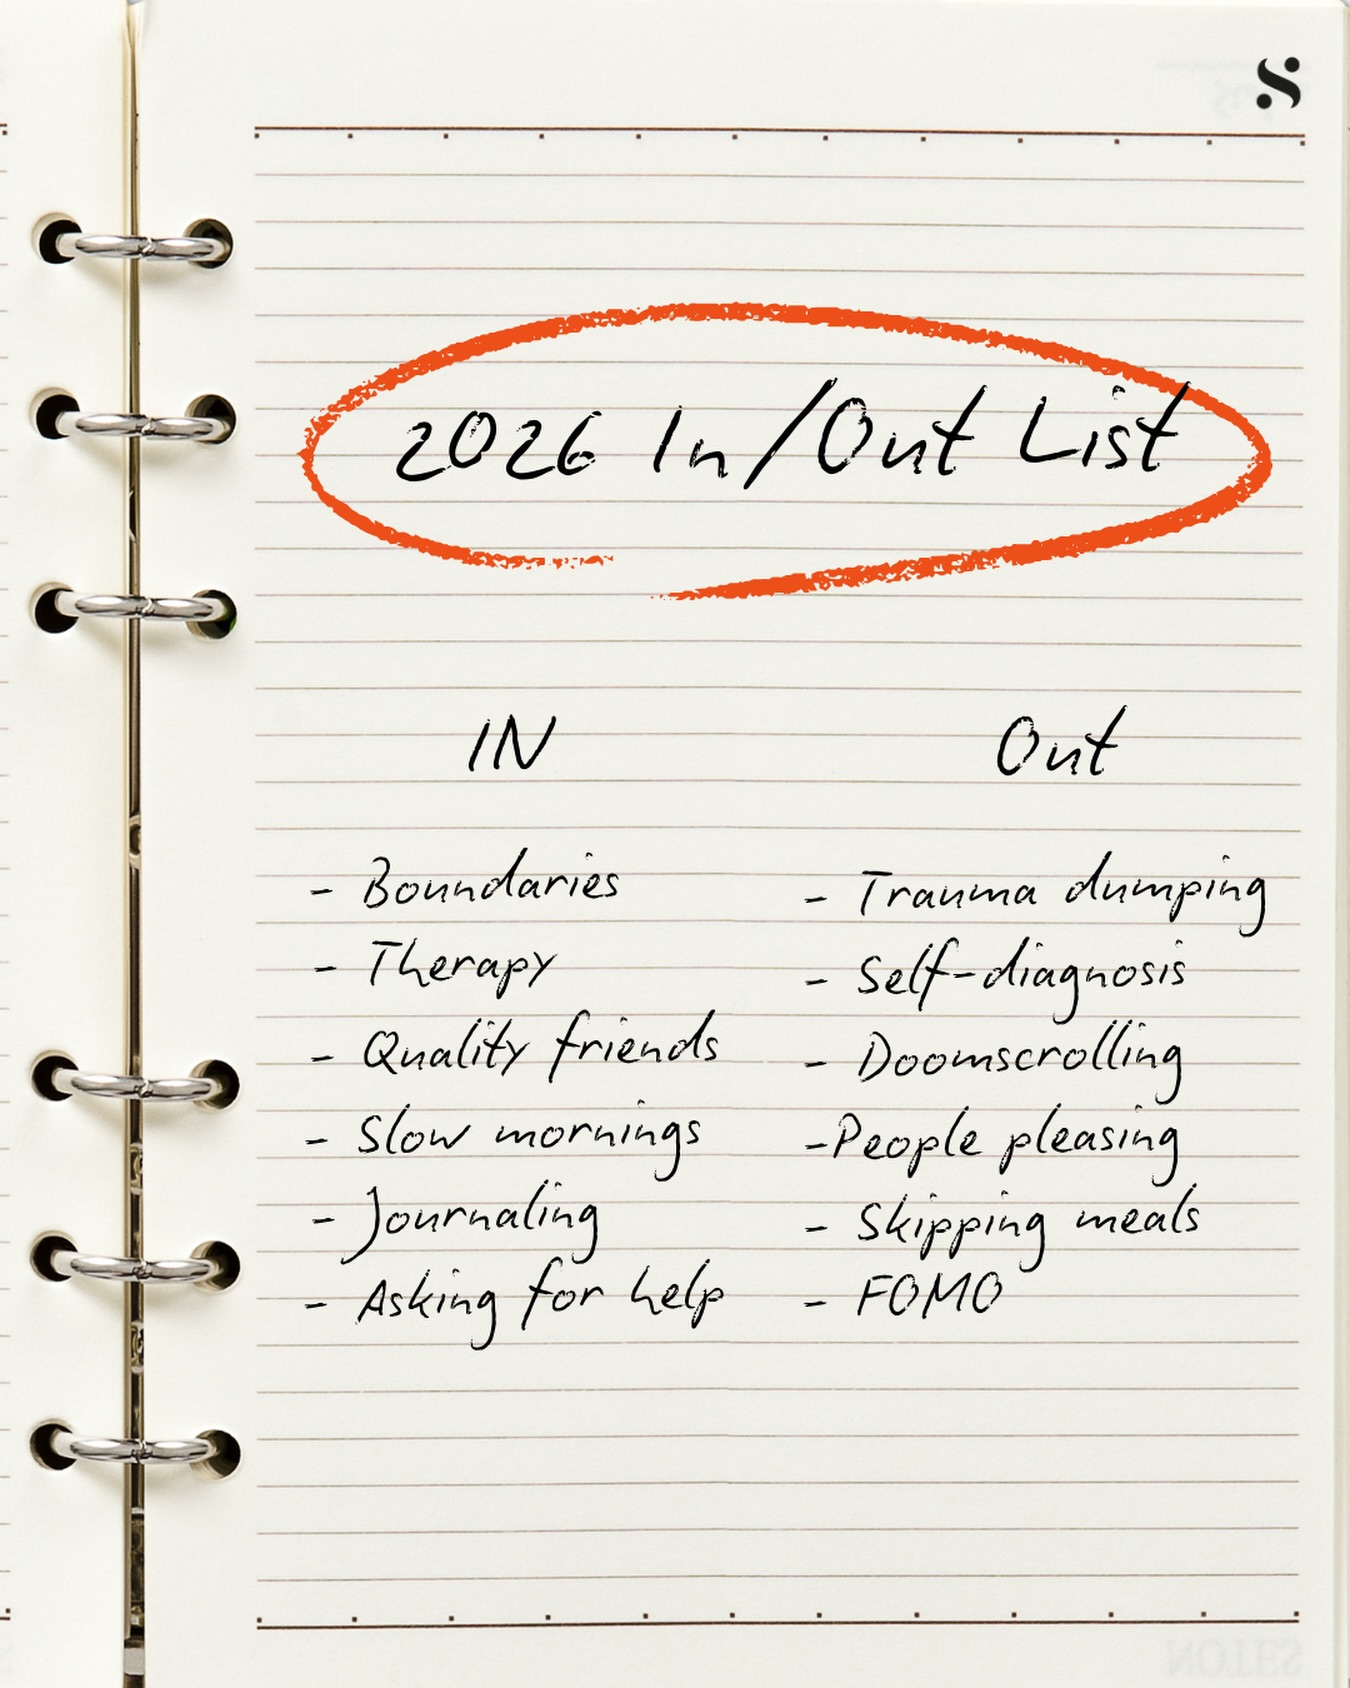 2026 In/Out List
IN
- Boundaries
- Therapy
- Quality friends
- Slow mornings
- Journaling
- Asking for help
Out
- Trauma dumping
- Self-diagnosis
- Doomscrolling
-People pleasing
- Skipping meals
- FOMO
NOTES